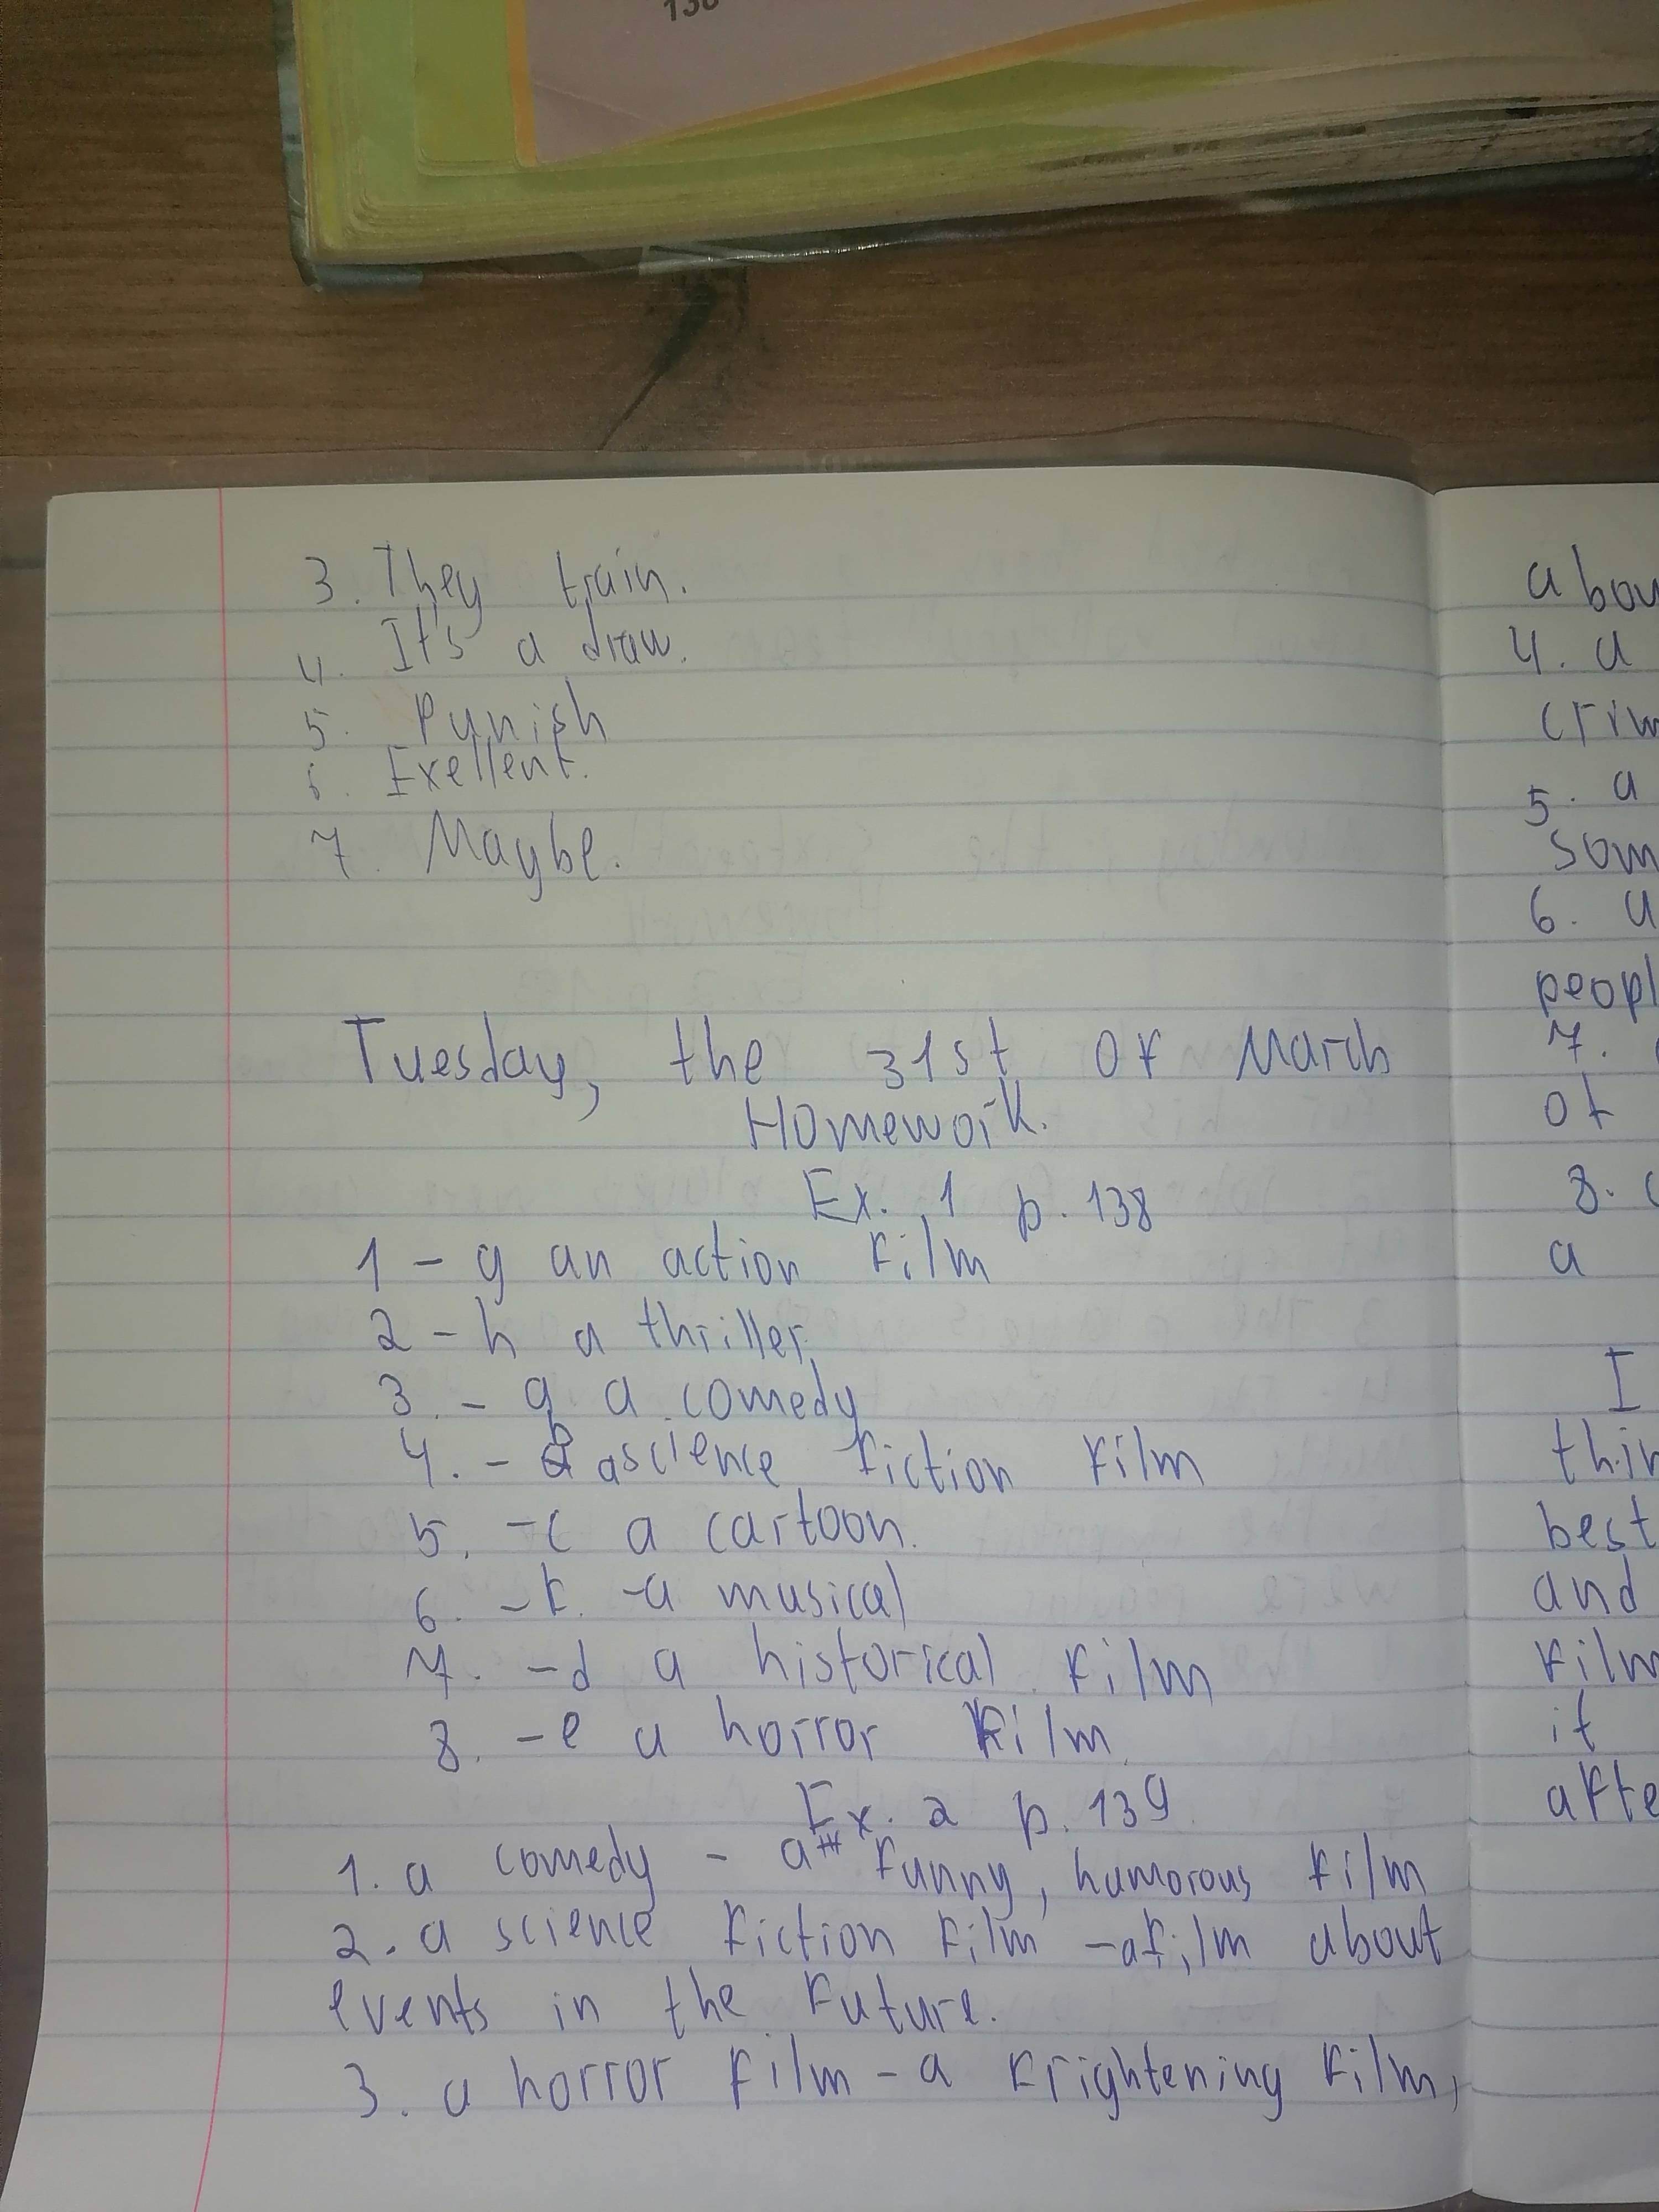 3. They train.
4. It's a draw.
5. Punish
6. Exellent.
7. Maybe.
Tuesday, the 31st of March
Homework.
Ex. 1 p. 138
1 - g an action film
2 - h a thriller
3. - a a comedy
4. - b a science fiction film
5. - c a cartoon.
6. - f. - a musical
7. - d a historical film
8. - e a horror film.
Ex. 2 p. 139
1. a comedy - a funny, humorous film
2. a science fiction film - a film about
events in the future.
3. a horror film - a frightening film,
4. a
5. a
6. a
7.
of
8.
a
I
best
and
film
it